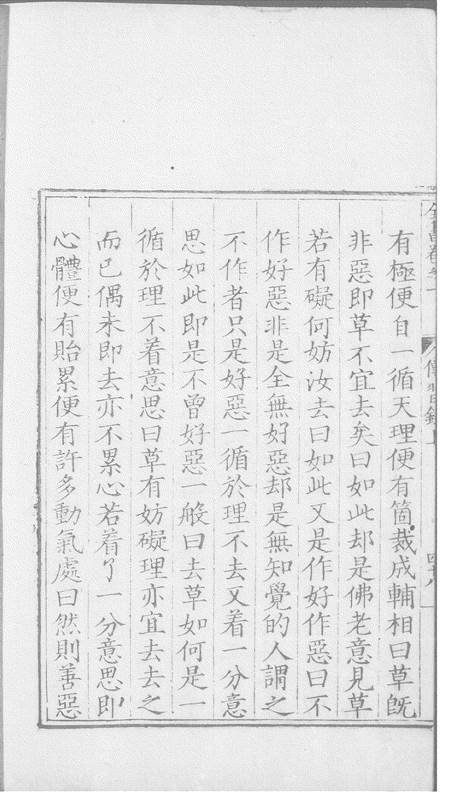 有極便自一循天理便有箇裁成輔相曰草既
非惡即草不宜去矣曰如此却是佛老意見草
若有礙何妨汝去曰如此又是作好作惡曰不
作好惡非是全無好惡却是無知覺的人謂之
不作者只是好惡一循於理不去又着一分意
思如此即是不曾好惡一般曰去草如何是一
循於理不着意思曰草有妨礙理亦宜去去之
而已偶未即去亦不累心若着了一分意思即
心體便有貽累便有許多動氣處曰然則善惡